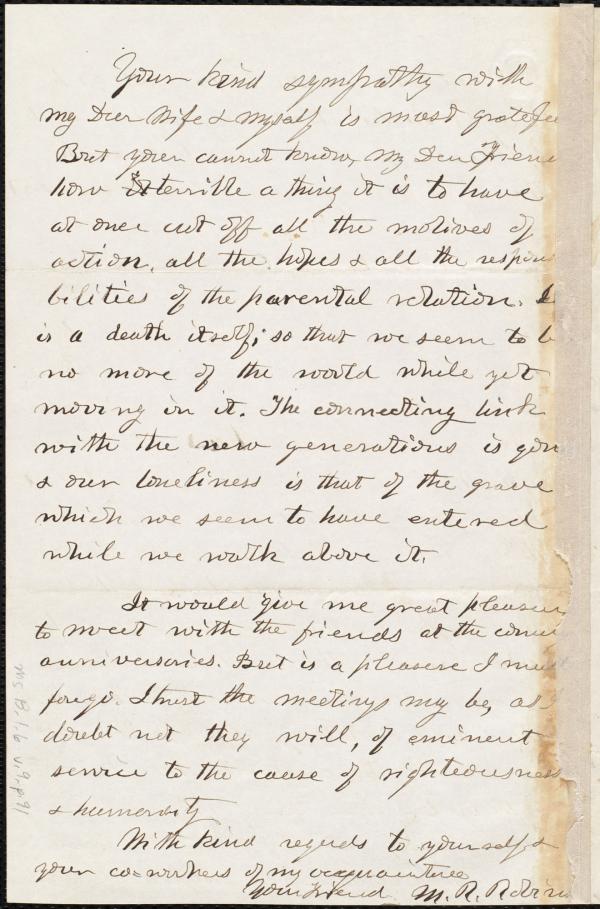 Your kind sympathy with
my Dear Wife & myself is most grateful
But you cannot know, my Dear Friend
how terrible a thing it is to have
at once cut off all the motives of
action, all the hopes & all the respon
bilities of the parental relation. I
is a death itself; so that we seem to b
no more of the world while yet
moving in it. The connecting link
with the new generations is gon
& our loneliness is that of the grave
which we seem to have entered
while we walk above it.
It would give me great pleasure
to meet with the friends at the comin
anniversaries. But is a pleasure I must
forego. I trust the meetings may be, as I
doubt not they will, of eminent
service to the cause of righteousness
& humanity
With kind regards to yourself &
your co-workers of my acquaintance
Your Friend M. R. Robin
Ms B.1.6 v.9, p.91